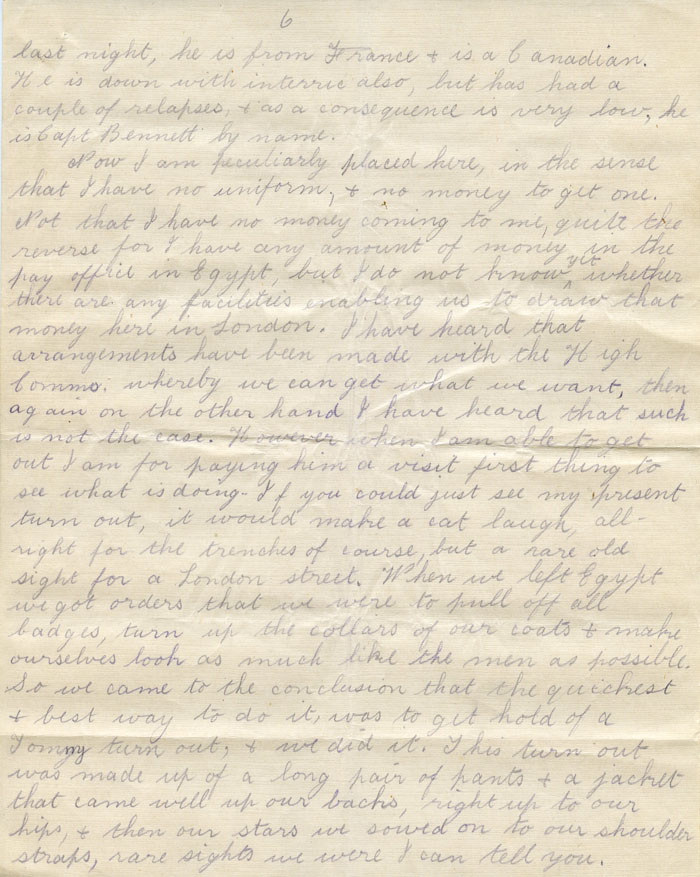 6
last night, he is from France & is a Canadian.
He is down with interric also, but has had a
couple of relapses, & as a consequence is very low, he
is Capt Bennett by name.
Now I am peculiarly placed here, in the sense
that I have no uniform, & no money to get one.
Not that I have no money coming to me, quite the
reverse for I have any amount of money in the
pay office in Egypt, but I do not know yet whether
there are any facilities enabling us to draw that
money here in London. I have heard that
arrangements have been made with the High
Commo: whereby we can get what we want, then
again on the other hand I have heard that such
is not the case. However when I am able to get
out I am for paying him a visit first thing to
see what is doing. If you could just see my present
turn out, it would make a cat laugh, all-
right for the trenches of course, but a rare old
sight for a London street. When we left Egypt
we got orders that we were to pull off all
badges, turn up the collars of our coats & make
ourselves look as much like the men as possible.
So we came to the conclusion that the quickest
& best way to do it, was to get hold of a
Tommy turn out, & we did it. This turn out
was made up of a long pair of pants & a jacket
that came well up our backs, right up to our
hips, & then our stars we sowed on to our shoulder
straps, rare sights we were I can tell you.